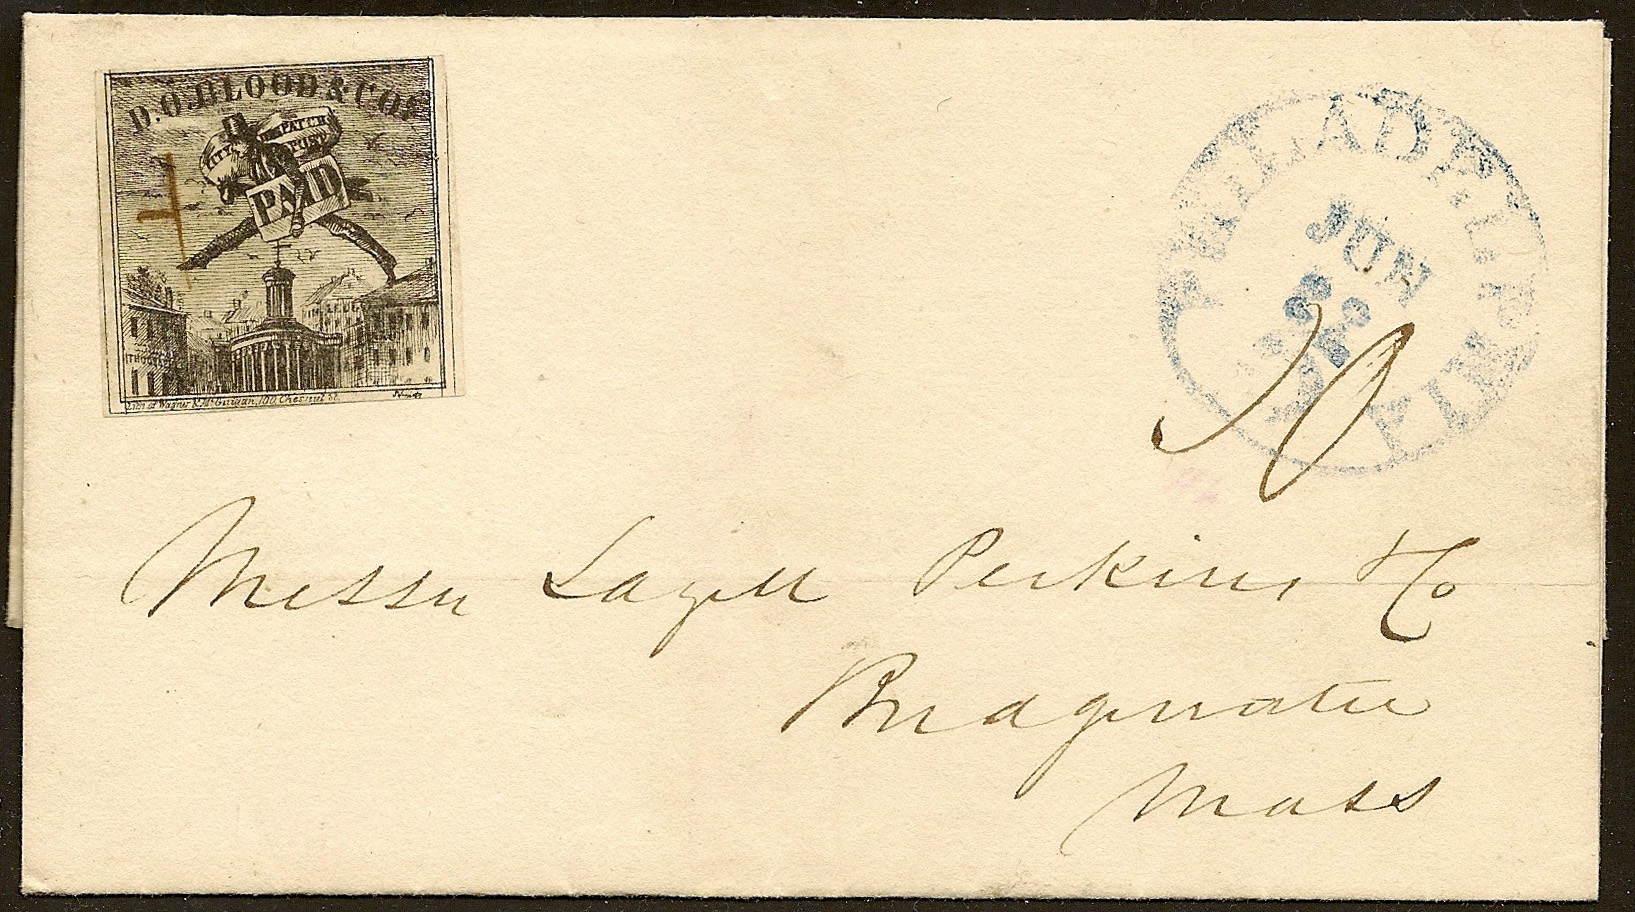 D.O.BLOOD & CO'S
CITY DESPATCH
POST
PAID
Lith of Wagner & McGuigan, 100 Chesnut St.
PHILADELPHIA
JUN
22
10
Messrs Lazell Perkins & Co
Bridgewater
Mass